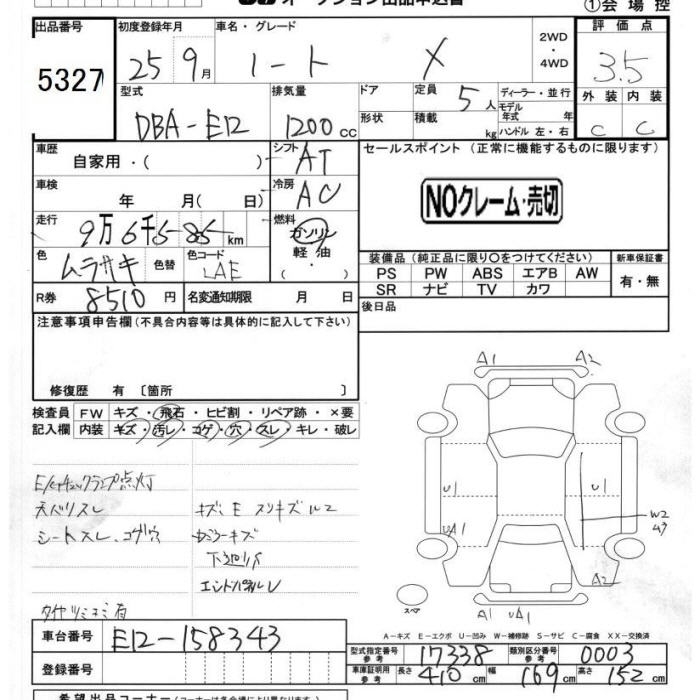 オークション出品申込書
①会場控
出品番号 初度登録年月 車名・グレード 2WD・4WD 評価点
5327 25 9月 ノート X 3.5
型式 排気量 ドア 定員 5人 ディーラー・並行 外装 内装
DBA-E12 1200cc 形状 積載 kg モデル年式 年 ハンドル 左・右 C C
車歴 自家用・( ) シフト AT セールスポイント (正常に機能するものに限ります)
車検 年 月( 日) 冷房 AC NOクレーム・売切
走行 9万6千585km 燃料 ガソリン 軽油 ( ・ )
色 ムラサキ 色替 色コード LAE
装備品 (純正品に限り〇をつけてください) 新車保証書
PS PW ABS エアB AW 有・無
SR ナビ TV カワ
R券 8510円 名変通知期限 月 日 後日品
注意事項申告欄 (不具合内容等は具体的に記入して下さい)
修復歴 有 〔箇所 〕
検査員 FW キズ・飛石・ヒビ割・リペア跡・×要
記入欄 内装 キズ・汚レ・コゲ・穴・スレ・キレ・破レ
E/Gチェックランプ点灯
天バリスレ キズ・E スリキズ
シートスレ、コゲ穴
エンドパネルU
有
A1 A2
U1 U1
UA1 W2
A2
スペア
A1 UA1
A-キズ E-エクボ U-凹み W-補修跡 S-サビ C-腐食 XX-交換済
車台番号 E12-158343
型式指定番号 参考 17338 類別区分番号 参考 0003
登録番号 車庫証明用 参考 長さ 410cm 幅 169cm 高さ 152cm
希望出品コーナー (コーナーは各会場により